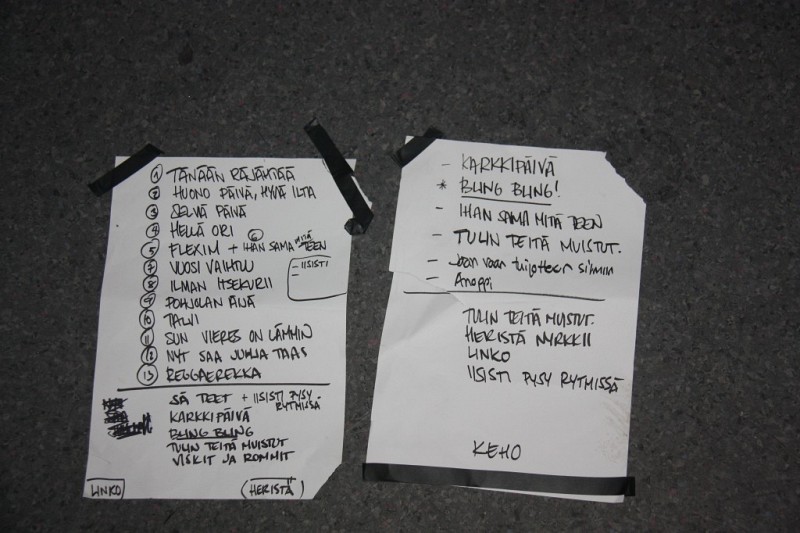 1 TÄNÄÄN RÄJÄHTÄÄ
2 HUONO PÄIVÄ, HYVÄ ILTA
3 SELVÄ PÄIVÄ
4 HELLÄ ORI
5 FLEXIM + 6 IHAN SAMA MITÄ TEEN
7 VUOSI VAIHTUU
- IISISTI
-
8 ILMAN ITSEKURII
9 POHJOLAN ÄIJÄ
10 TALVI
11 SUN VIERES ON LÄMMIN
12 NYT SAA JUHLIA TAAS
13 REGGAEREKKA
SÄ TEET + IISISTI PYSY RYTMISSÄ
KARKKIPÄIVÄ
BLING BLING
TULIN TEITÄ MUISTUT
VISKIT JA ROMMIT
LINKO
(HERISTÄ)
- KARKKIPÄIVÄ
* BLING BLING!
- IHAN SAMA MITÄ TEEN
- TULIN TEITÄ MUISTUT.
- Joen vaan tuijotteen silmiin
- Anoppi
TULIN TEITÄ MUISTUT.
HERISTÄ NYRKKII
LINKO
IISISTI PYSY RYTMISSÄ
KEHO